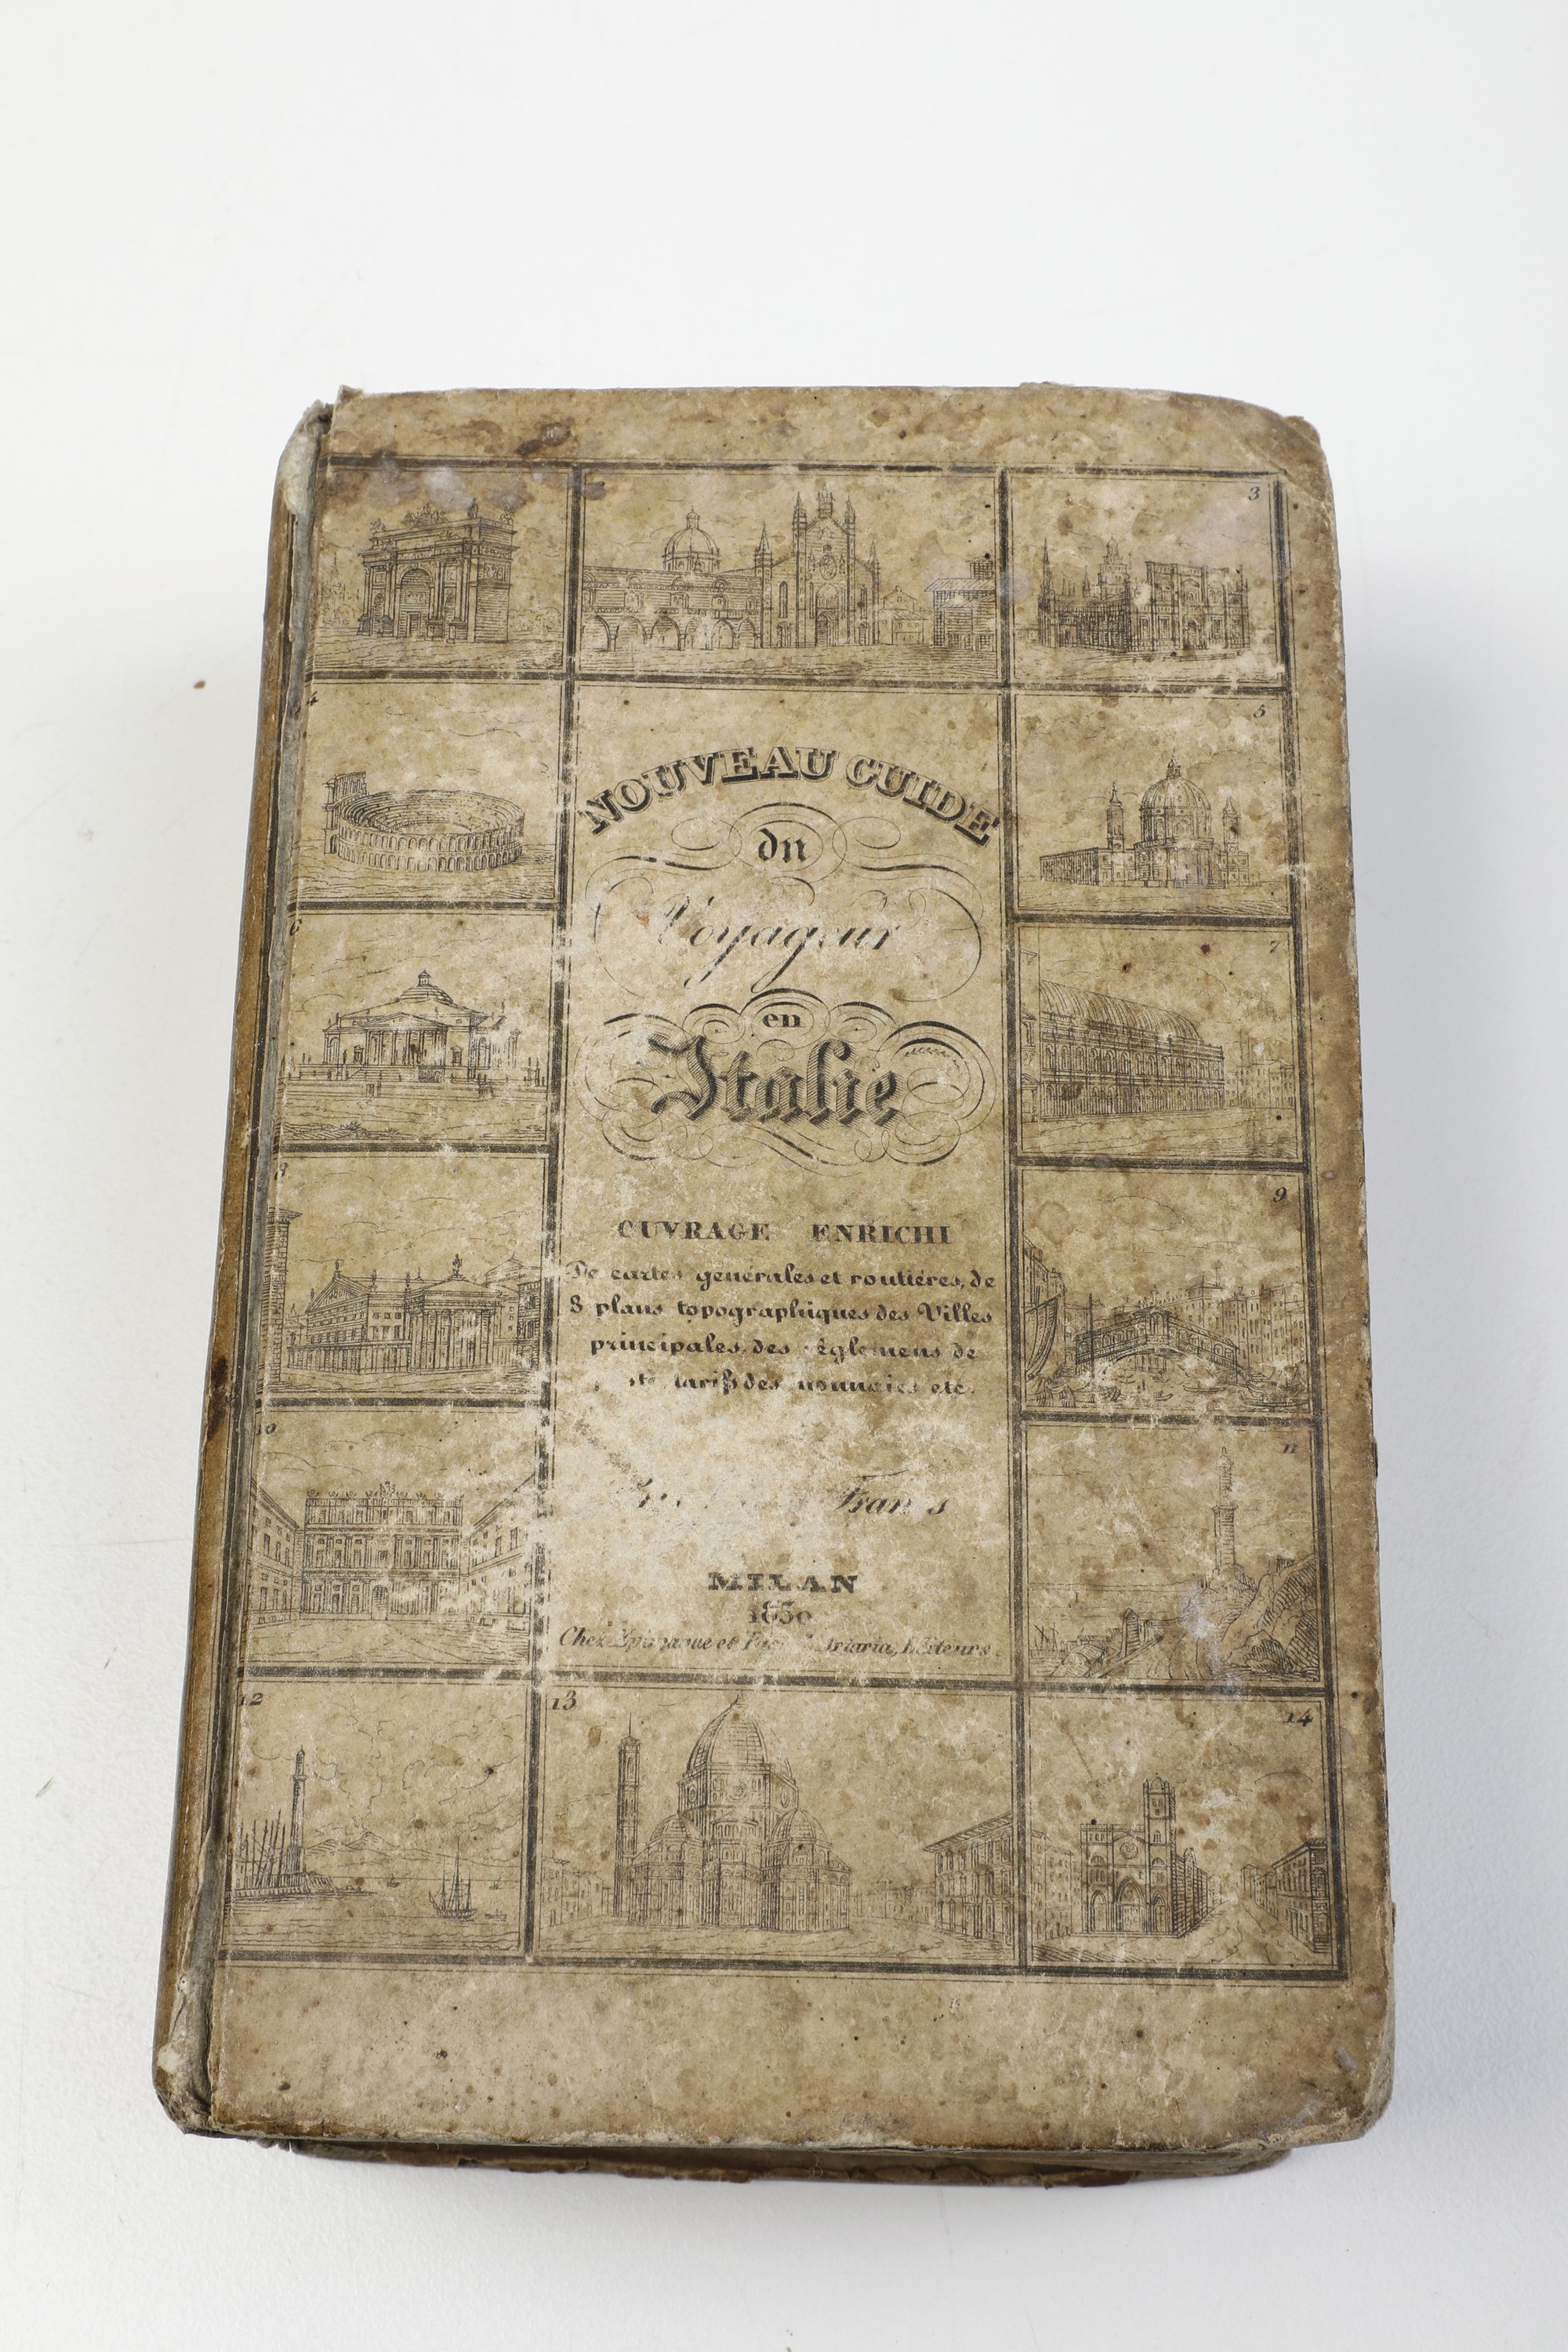 3
4
5
NOUVEAU GUIDE
du
Voyageur
en
Italie
6
7
9
OUVRAGE ENRICHI
De cartes générales et routières, de
8 plans topographiques des Villes
principales, des de
tarifs des monnaies etc.
10
11
MILAN
1830
Chez et Editeurs.
12
13
14